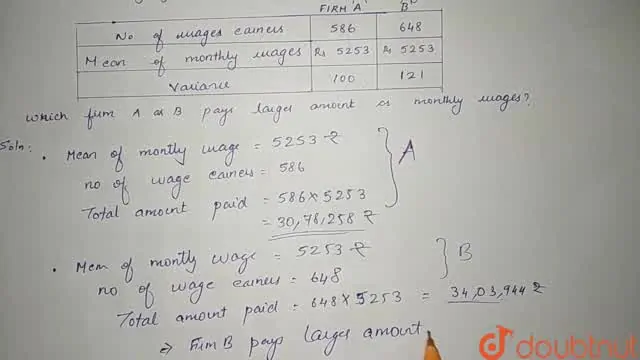 FIRM 'A' B
No of wages earners 586 648
Mean of monthly wages Rs 5253 Rs 5253
Variance 100 121
which firm A or B pays larger amount as monthly wages?
Soln: • Mean of montly wage = 5253 ₹
no of wage earners = 586
Total amount paid = 586 × 5253
= 30,78,258 ₹
A
• Mean of montly wage = 5253 ₹
no of wage earners = 648
B
Total amount paid = 648 × 5253 = 34,03,944 ₹
⇒ Firm B pays larger amount
doubtnut